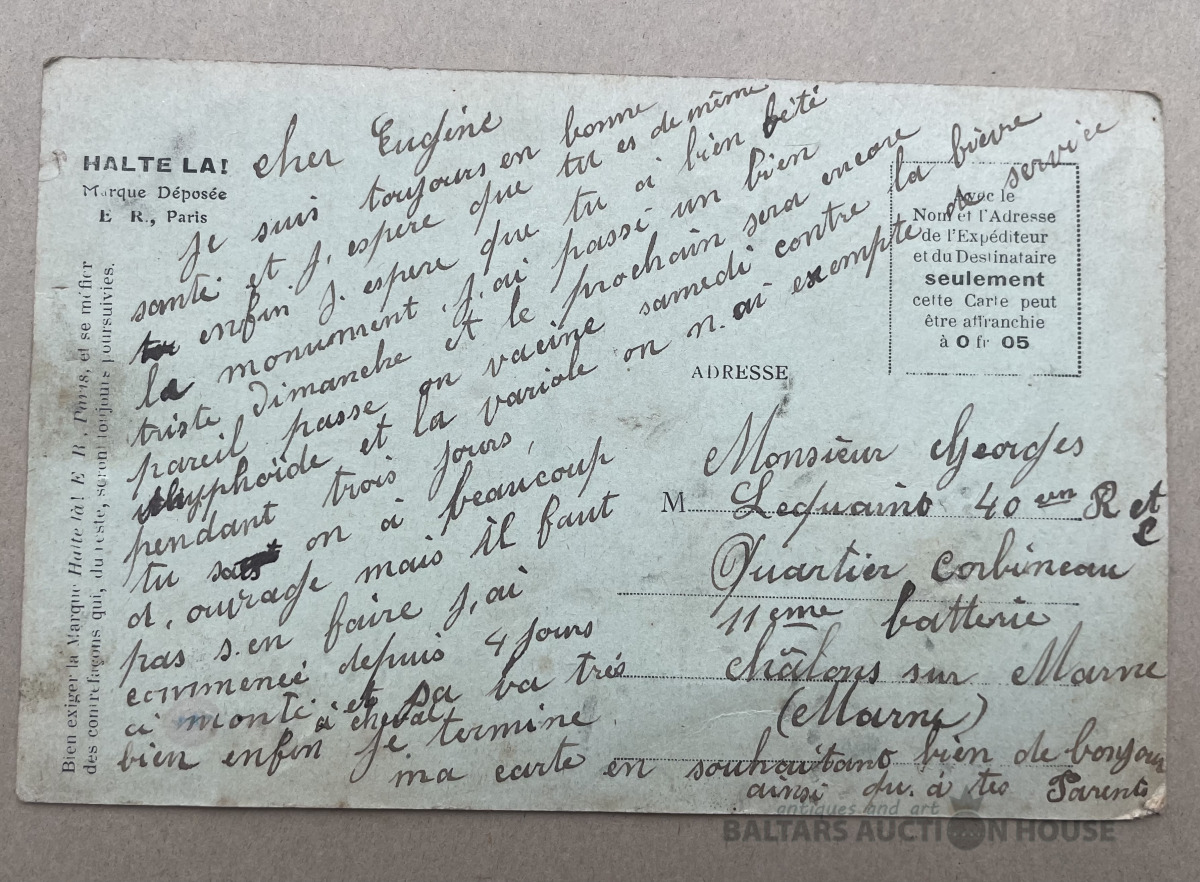 HALTE LA!
Marque Déposée
E R., Paris
Bien exiger la Marque Halte là! E R, Paris, et se méfier
des contrefaçons qui, du reste, seront toujours poursuivies.
cher Eugène
je suis toujours en bonne
santé et j,espere que tu es de même
enfin j.espere que tu a bien bété
la monument, j,ai passé un bien
triste dimanche et le prochain sera encore
pareil passe on vacine samedi contre la bièvre
thyphoïde et la variole on n.ai exempte de service
pendant trois jours,
tu sais on a beaucoup
d,ouvrage mais il faut
pas s.en faire j,ai
commencé depuis 4 jours
a monté à cheval et sa va trés
bien enfin je termine
ma carte en souhaitant bien de bonjour
ainsi qu.à tes Parents
Avec le
Nom et l'Adresse
de l'Expéditeur
et du Destinataire
seulement
cette Carte peut
être affranchie
à 0 fr 05
ADRESSE
Monsieur Georges
M Lequaint 40 em R et
Quartier Corbineau
11eme batterie
Châlons sur Marne
(Marne)
antiques and art
BALTARS AUCTION HOUSE